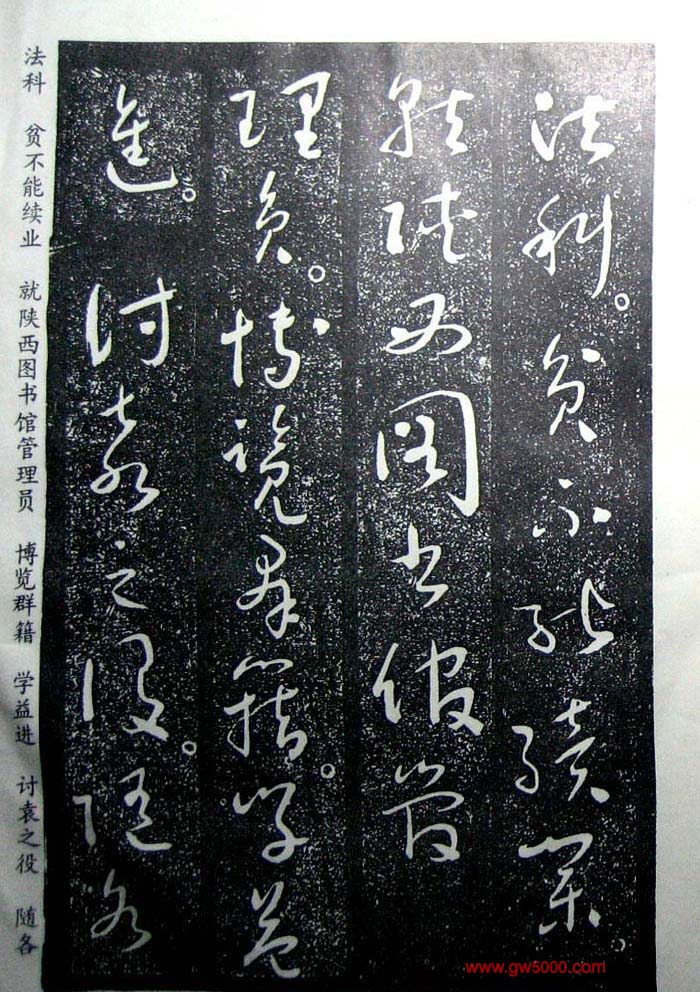 法科。贫不能續業。
就陕西图书馆管
理员。博览群籍。学益
進。讨袁之役。随各
法科 贫不能续业 就陕西图书馆管理员 博览群籍 学益进 讨袁之役 随各
www.gw5000.com